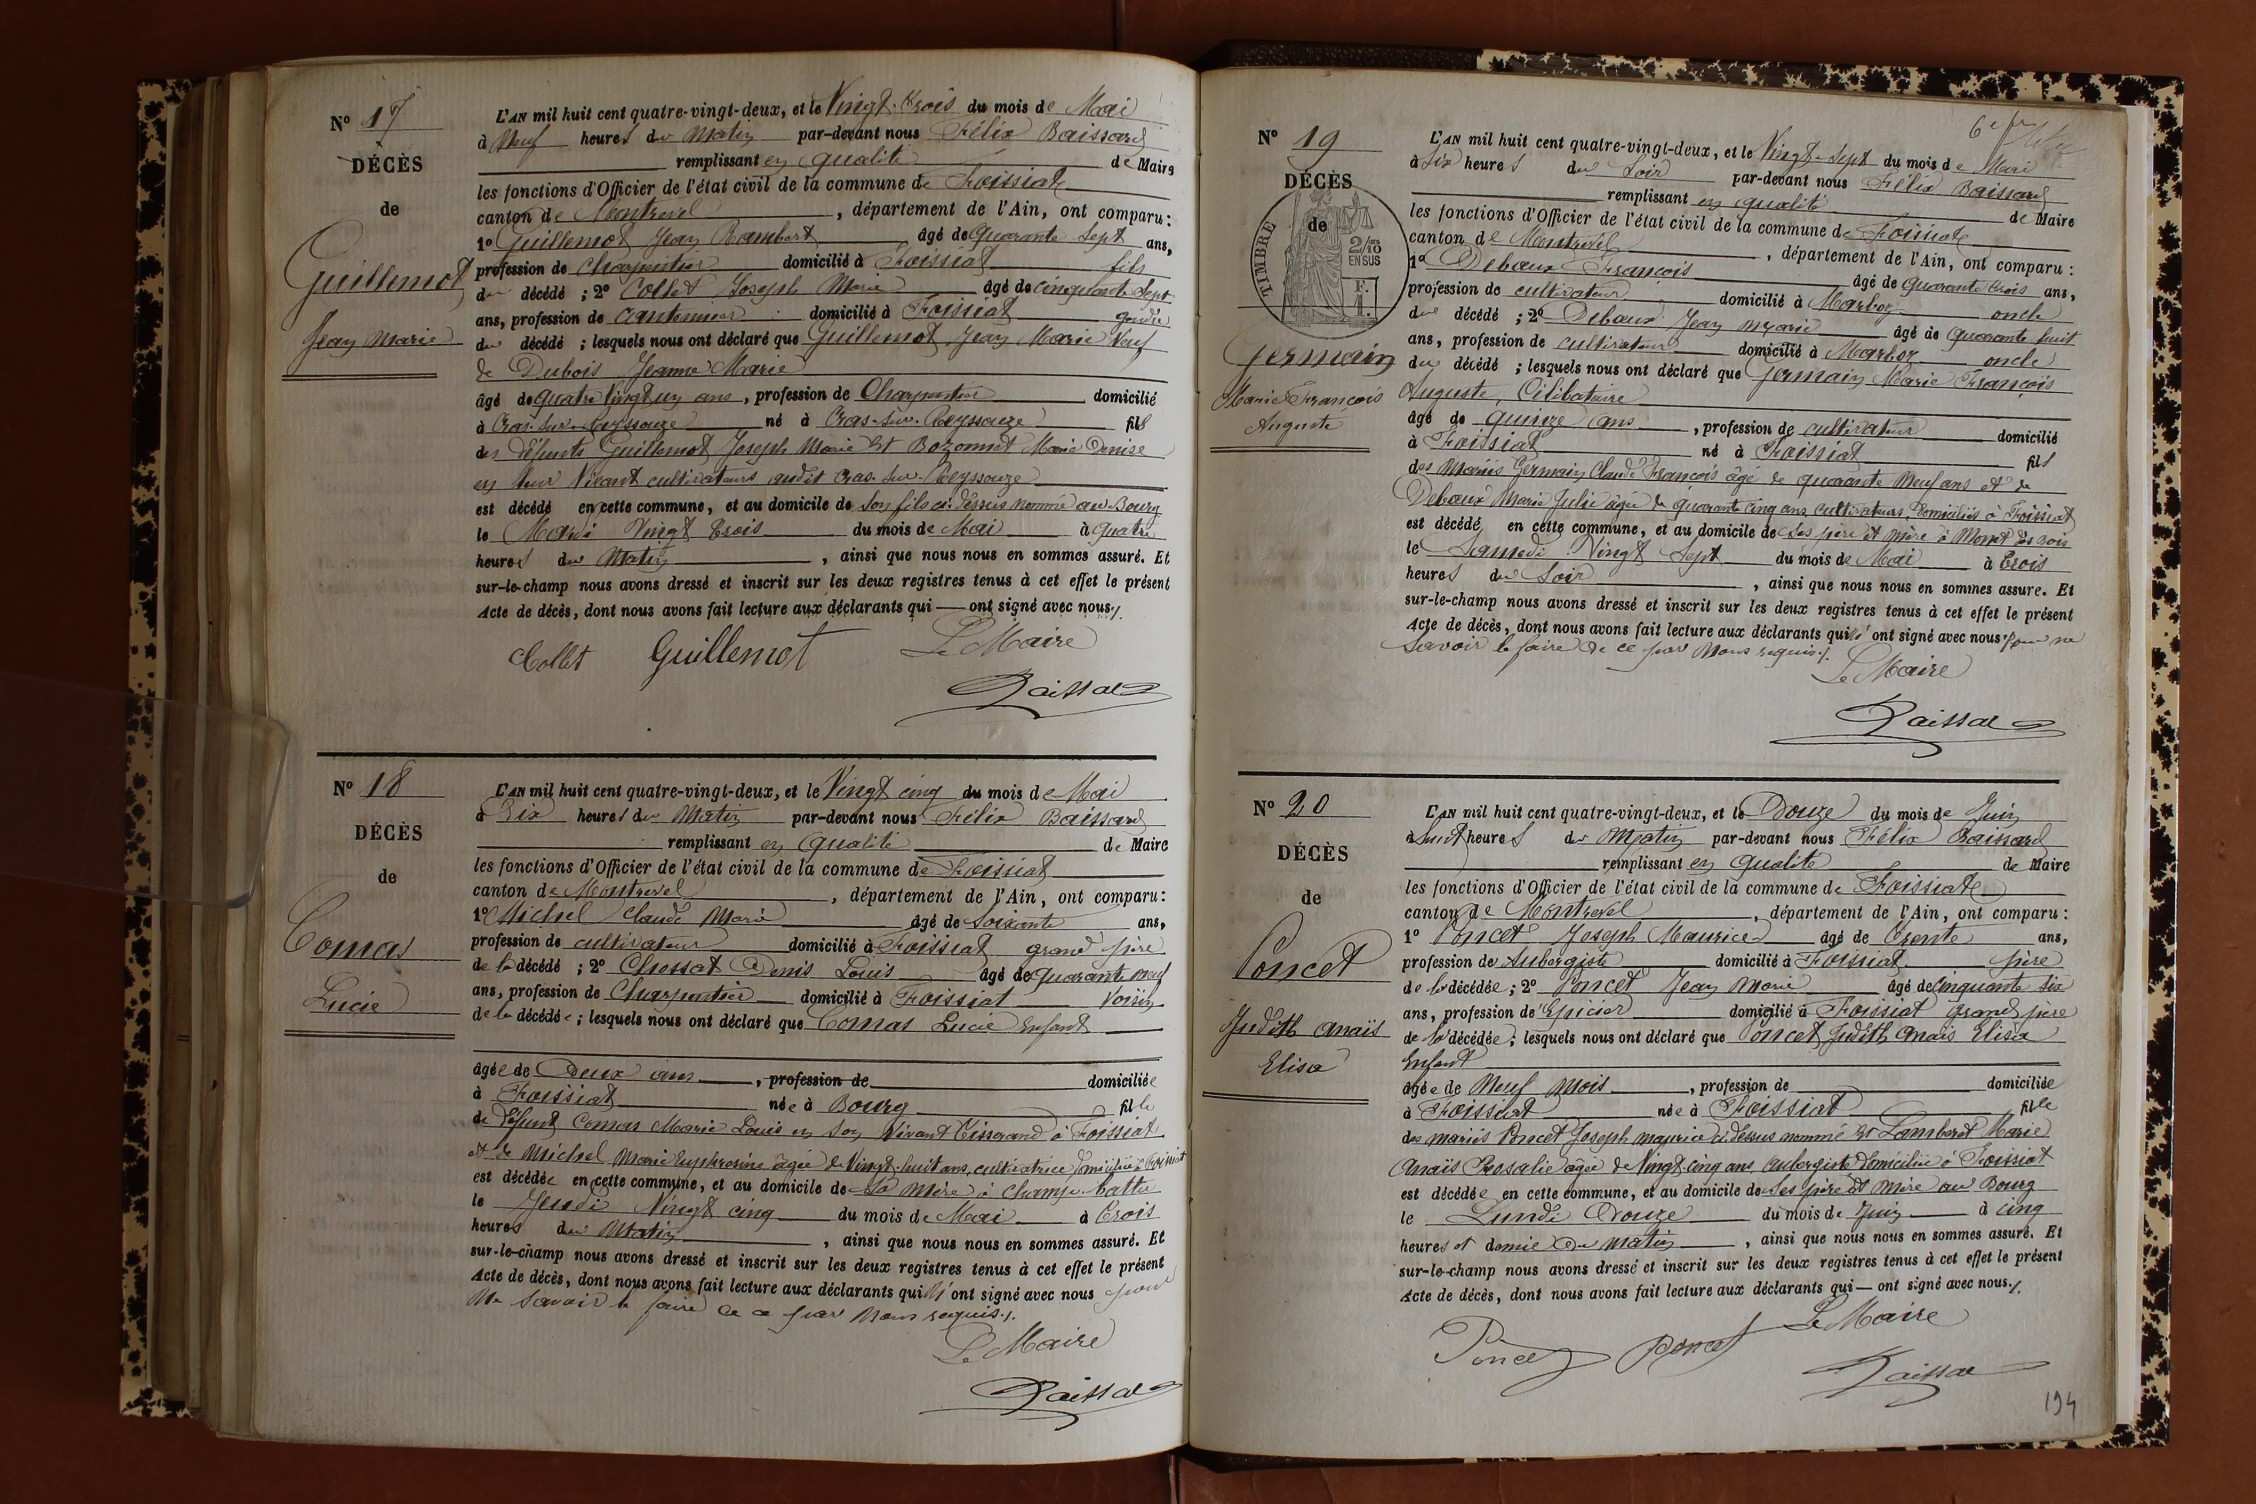 N° 17
DÉCÈS
de
Guillemot
Jean Marie
L'AN mil huit cent quatre-vingt-deux, et le Vingt-trois du mois de Mai
à Neuf heures du Matin par-devant nous Félix Baissard
remplissant en qualité de Maire
les fonctions d'Officier de l'état civil de la commune de Foissiat
canton de Montrevel, département de l'Ain, ont comparu:
1° Guillemot Jean Rambert âgé de Quarante Sept ans,
profession de Charpentier domicilié à Foissiat fils
du décédé; 2° Collet Joseph Marie âgé de cinquante Sept
ans, profession de cantonnier domicilié à Foissiat gendre
du décédé; lesquels nous ont déclaré que Guillemot Jean Marie Veuf
de Dubois Jeanne Marie
âgé de quatre Vingt un ans, profession de Charpentier domicilié
à Cras-sur-Reyssouze né à Cras-sur-Reyssouze fils
des Défunts Guillemot Joseph Marie Et Bozonnet Marie Denise
en leur Vivant cultivateurs audit Cras-sur-Reyssouze
est décédé en cette commune, et au domicile de Son fils ci-dessus nommé au Bourg
le Mardi Vingt trois du mois de Mai à quatre
heures du Matin, ainsi que nous nous en sommes assuré. Et
sur-le-champ nous avons dressé et inscrit sur les deux registres tenus à cet effet le présent
Acte de décès, dont nous avons fait lecture aux déclarants qui — ont signé avec nous./.
Collet Guillemot Le Maire
Baissard
N° 18
DÉCÈS
de
Comas
Lucie
L'AN mil huit cent quatre-vingt-deux, et le Vingt cinq du mois de Mai
à Six heures du Matin par-devant nous Félix Baissard
remplissant en qualité de Maire
les fonctions d'Officier de l'état civil de la commune de Foissiat
canton de Montrevel, département de l'Ain, ont comparu:
1° Michel Claude Marie âgé de Soixante ans,
profession de cultivateur domicilié à Foissiat grand père
de la décédé; 2° Chossat Denis Louis âgé de quarante neuf
ans, profession de Charpentier domicilié à Foissiat Voisin
de la décédée; lesquels nous ont déclaré que Comas Lucie Enfant
âgée de Deux ans, profession de domiciliée
à Foissiat née à Bourg fille
de Défunt Comas Marie Louis en Son Vivant Tisserand à Foissiat
et de Michel Marie Euphrosine âgée de Vingt-huit ans, cultivatrice domiciliée à Foissiat
est décédée en cette commune, et au domicile de Sa Mère à Champ-battu
le Jeudi Vingt cinq du mois de Mai à trois
heures du Matin, ainsi que nous nous en sommes assuré. Et
sur-le-champ nous avons dressé et inscrit sur les deux registres tenus à cet effet le présent
Acte de décès, dont nous avons fait lecture aux déclarants qui n' ont signé avec nous pour
Ne Savoir le faire de ce par Nous requis./.
Le Maire
Baissard
6e
N° 19
DÉCÈS
de
TIMBRE
2/10
EN SUS
F.
1.
Germain
Marie François
Auguste
L'AN mil huit cent quatre-vingt-deux, et le Vingt-Sept du mois de Mai
à Six heures du Soir par-devant nous Félix Baissard
remplissant en qualité de Maire
les fonctions d'Officier de l'état civil de la commune de Foissiat
canton de Montrevel, département de l'Ain, ont comparu:
1° Debaux François âgé de quarante trois ans,
profession de cultivateur domicilié à Marboz oncle
du décédé; 2° Debaux Jean Marie âgé de quarante huit
ans, profession de cultivateur domicilié à Marboz oncle
du décédé; lesquels nous ont déclaré que Germain Marie François
Auguste, Célibataire
âgé de quinze ans, profession de cultivateur domicilié
à Foissiat né à Foissiat fils
des Mariés Germain Claude François âgé de quarante Neuf ans et de
Debaux Marie Julie âgée de quarante cinq ans, cultivateurs, Domiciliés à Foissiat
est décédé en cette commune, et au domicile de Ses père et mère à
le Samedi Vingt Sept du mois de Mai à trois
heures du Soir, ainsi que nous nous en sommes assure. Et
sur-le-champ nous avons dressé et inscrit sur les deux registres tenus à cet effet le présent
Acte de décès, dont nous avons fait lecture aux déclarants qui n' ont signé avec nous pour ne
Savoir le faire de ce par Nous requis./.
Le Maire
Baissard
N° 20
DÉCÈS
de
Poncet
Judith Anaïs
Elisa
L'AN mil huit cent quatre-vingt-deux, et le Douze du mois de Juin
à huit heures du Matin par-devant nous Félix Baissard
remplissant en qualité de Maire
les fonctions d'Officier de l'état civil de la commune de Foissiat
canton de Montrevel, département de l'Ain, ont comparu:
1° Poncet Joseph Maurice âgé de Trente ans,
profession de Aubergiste domicilié à Foissiat père
de la décédée; 2° Poncet Jean Marie âgé de Cinquante six
ans, profession de Epicier domicilié à Foissiat Grand père
de la décédée; lesquels nous ont déclaré que Poncet Judith Anaïs Elisa
Enfant
âgée de Neuf Mois, profession de domiciliée
à Foissiat née à Foissiat fille
des mariés Poncet Joseph Maurice ci-dessus nommé Et Lambert Marie
Anaïs Rosalie âgée de Vingt cinq ans, aubergiste Domiciliée à Foissiat
est décédée en cette commune, et au domicile de Ses père Et mère au Bourg
le Lundi Douze du mois de Juin à cinq
heures et demie du Matin, ainsi que nous nous en sommes assuré. Et
sur-le-champ nous avons dressé et inscrit sur les deux registres tenus à cet effet le présent
Acte de décès, dont nous avons fait lecture aux déclarants qui — ont signé avec nous./.
Le Maire
Poncet Poncet
Baissard
194